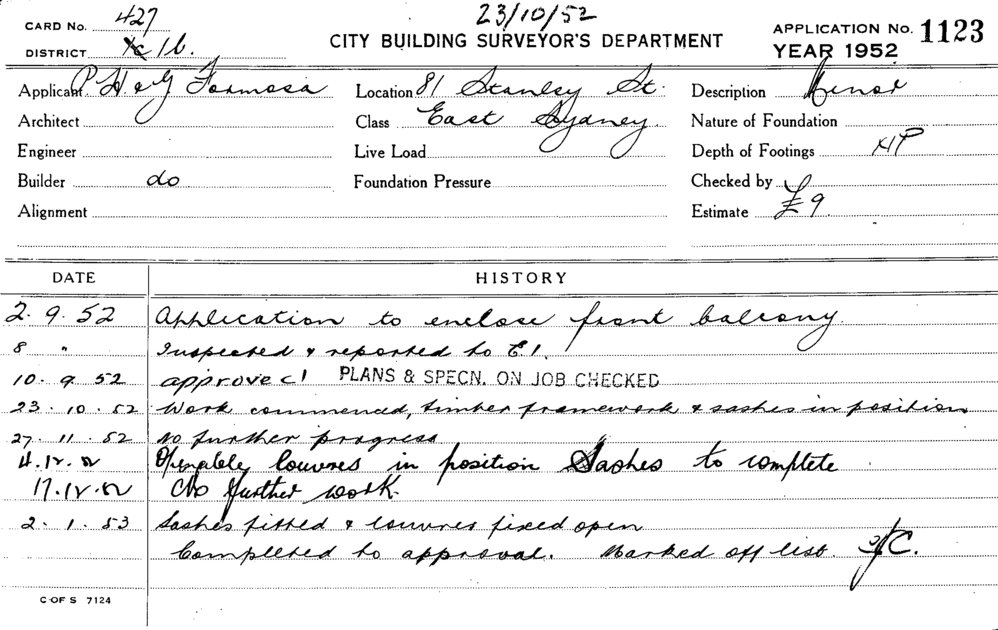 CARD No. 427
23/10/52
APPLICATION No. 1123
DISTRICT 1b.
CITY BUILDING SURVEYOR'S DEPARTMENT
YEAR 1952
Applicant P H & G Formosa Location 81 Stanley St. Description Minor
Architect Class East Sydney Nature of Foundation
Engineer Live Load Depth of Footings HP
Builder do Foundation Pressure Checked by
Alignment Estimate £9
DATE HISTORY
2. 9. 52 Application to enclose front balcony.
8 " Inspected & reported to E.I.
10. 9. 52 approved PLANS & SPECN. ON JOB CHECKED
23. 10. 52 Work commenced, timber framework & sashes in position
27. 11. 52 No further progress
4.12.52 Openable louvres in position Sashes to complete
17.12.52 No further work.
2. 1. 53 Sashes fitted & louvres fixed open
Completed to approval. Marked off list.
C OF S 7124